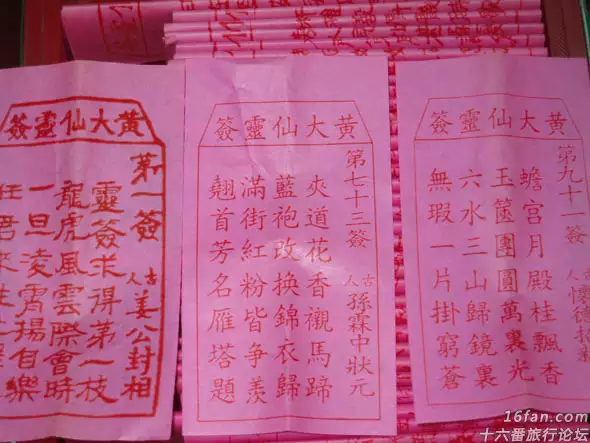 黃大仙靈簽
第九十一簽
古人 懷德招
蟾宮月殿桂飄香
玉篋團圓萬裏光
六水三山歸鏡裏
無瑕一片掛窮蒼
黃大仙靈簽
第七十三簽
古人 孫霖中狀元
夾道花香襯馬蹄
藍袍改換錦衣歸
滿街紅粉皆爭羨
翹首芳名雁塔題
黃大仙靈簽
第一簽
古人 姜公封相
靈簽求得第一枝
龍虎風雲際會時
一旦凌霄揚自樂
任君來
16fan.com
十六番旅行论坛